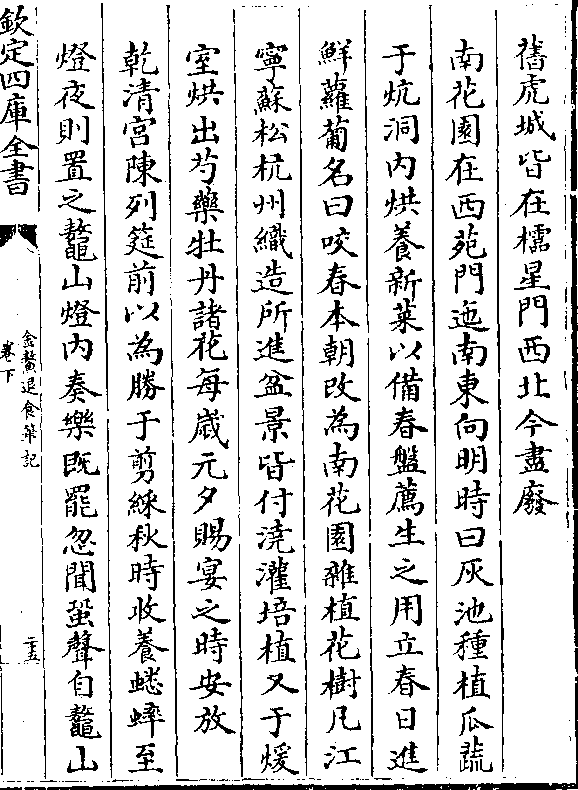 舊虎城皆在櫺星門西北今盡廢
南花園在西苑門迤南東向明時曰灰池種植瓜蔬
于炕洞内烘養新菜以備春盤薦生之用立春日進
鮮蘿蔔名曰咬春本朝改為南花園雜植花樹凡江
寧蘇松杭州織造所進盆景皆付澆灌培植又于煖
室烘出芍藥牡丹諸花每歲元夕賜宴之時安放
乾清宮陳列筵前以為勝于剪綵秋時收養蟋蟀至
燈夜則置之鼇山燈内奏樂既罷忽聞蛩聲自鼇山
欽定四庫全書
金鰲退食筆記
卷下
二五